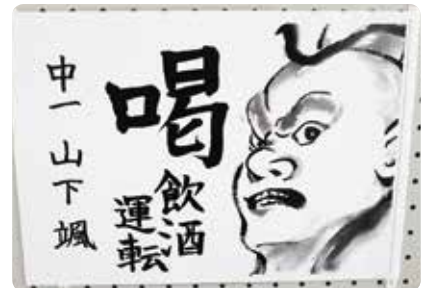 喝
飲酒
運転
中一 山下 颯